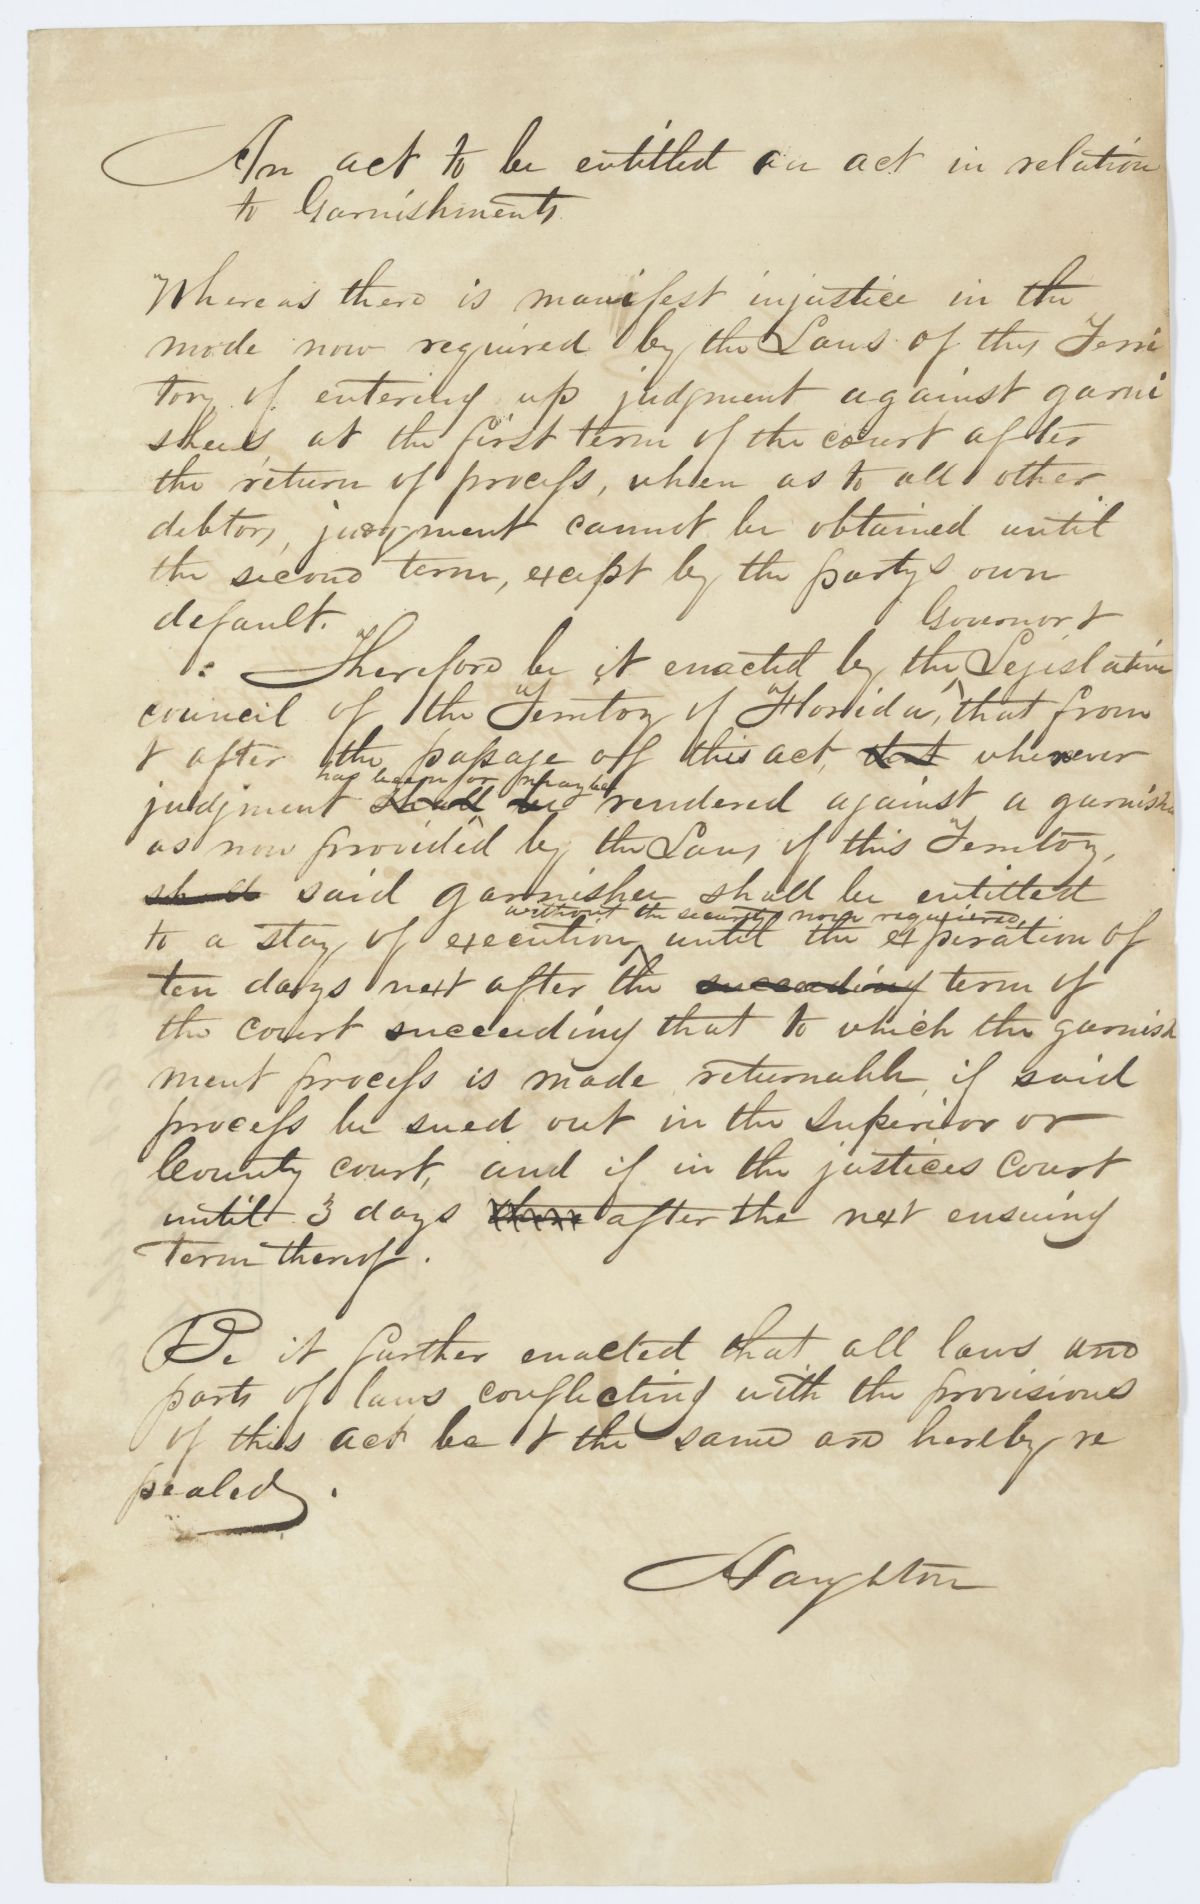 An act to be entitled an act in relation
to Garnishments
Whereas there is manifest injustice in the
mode now required by the Laws of this Terri
tory of entering up judgment against garni
shees, at the first term of the court after
the return of process, when as to all other
debtors, judgment cannot be obtained until
the second term, except by the partys own
default.
Governor &
: Therefore be it enacted by the Legislative
council of the Territory of Florida, that from
& after the passage off this act, that whenever
has been or may be
judgment shall be rendered against a garnishee
as now provided by the Laws of this Territory,
shall said garnishee shall be entitled
without the security now requiered,
to a stay of execution until the expiration of
ten days next after the succeeding term of
the court succeeding that to which the garnish
ment process is made returnable, if said
process be sued out in the superior or
County court, and if in the justices court
until 3 days after the next ensuing
Term thereof.
Be it further enacted that all laws and
parts of laws conflicting with the provisions
of this act be & the same are hereby re
pealed.